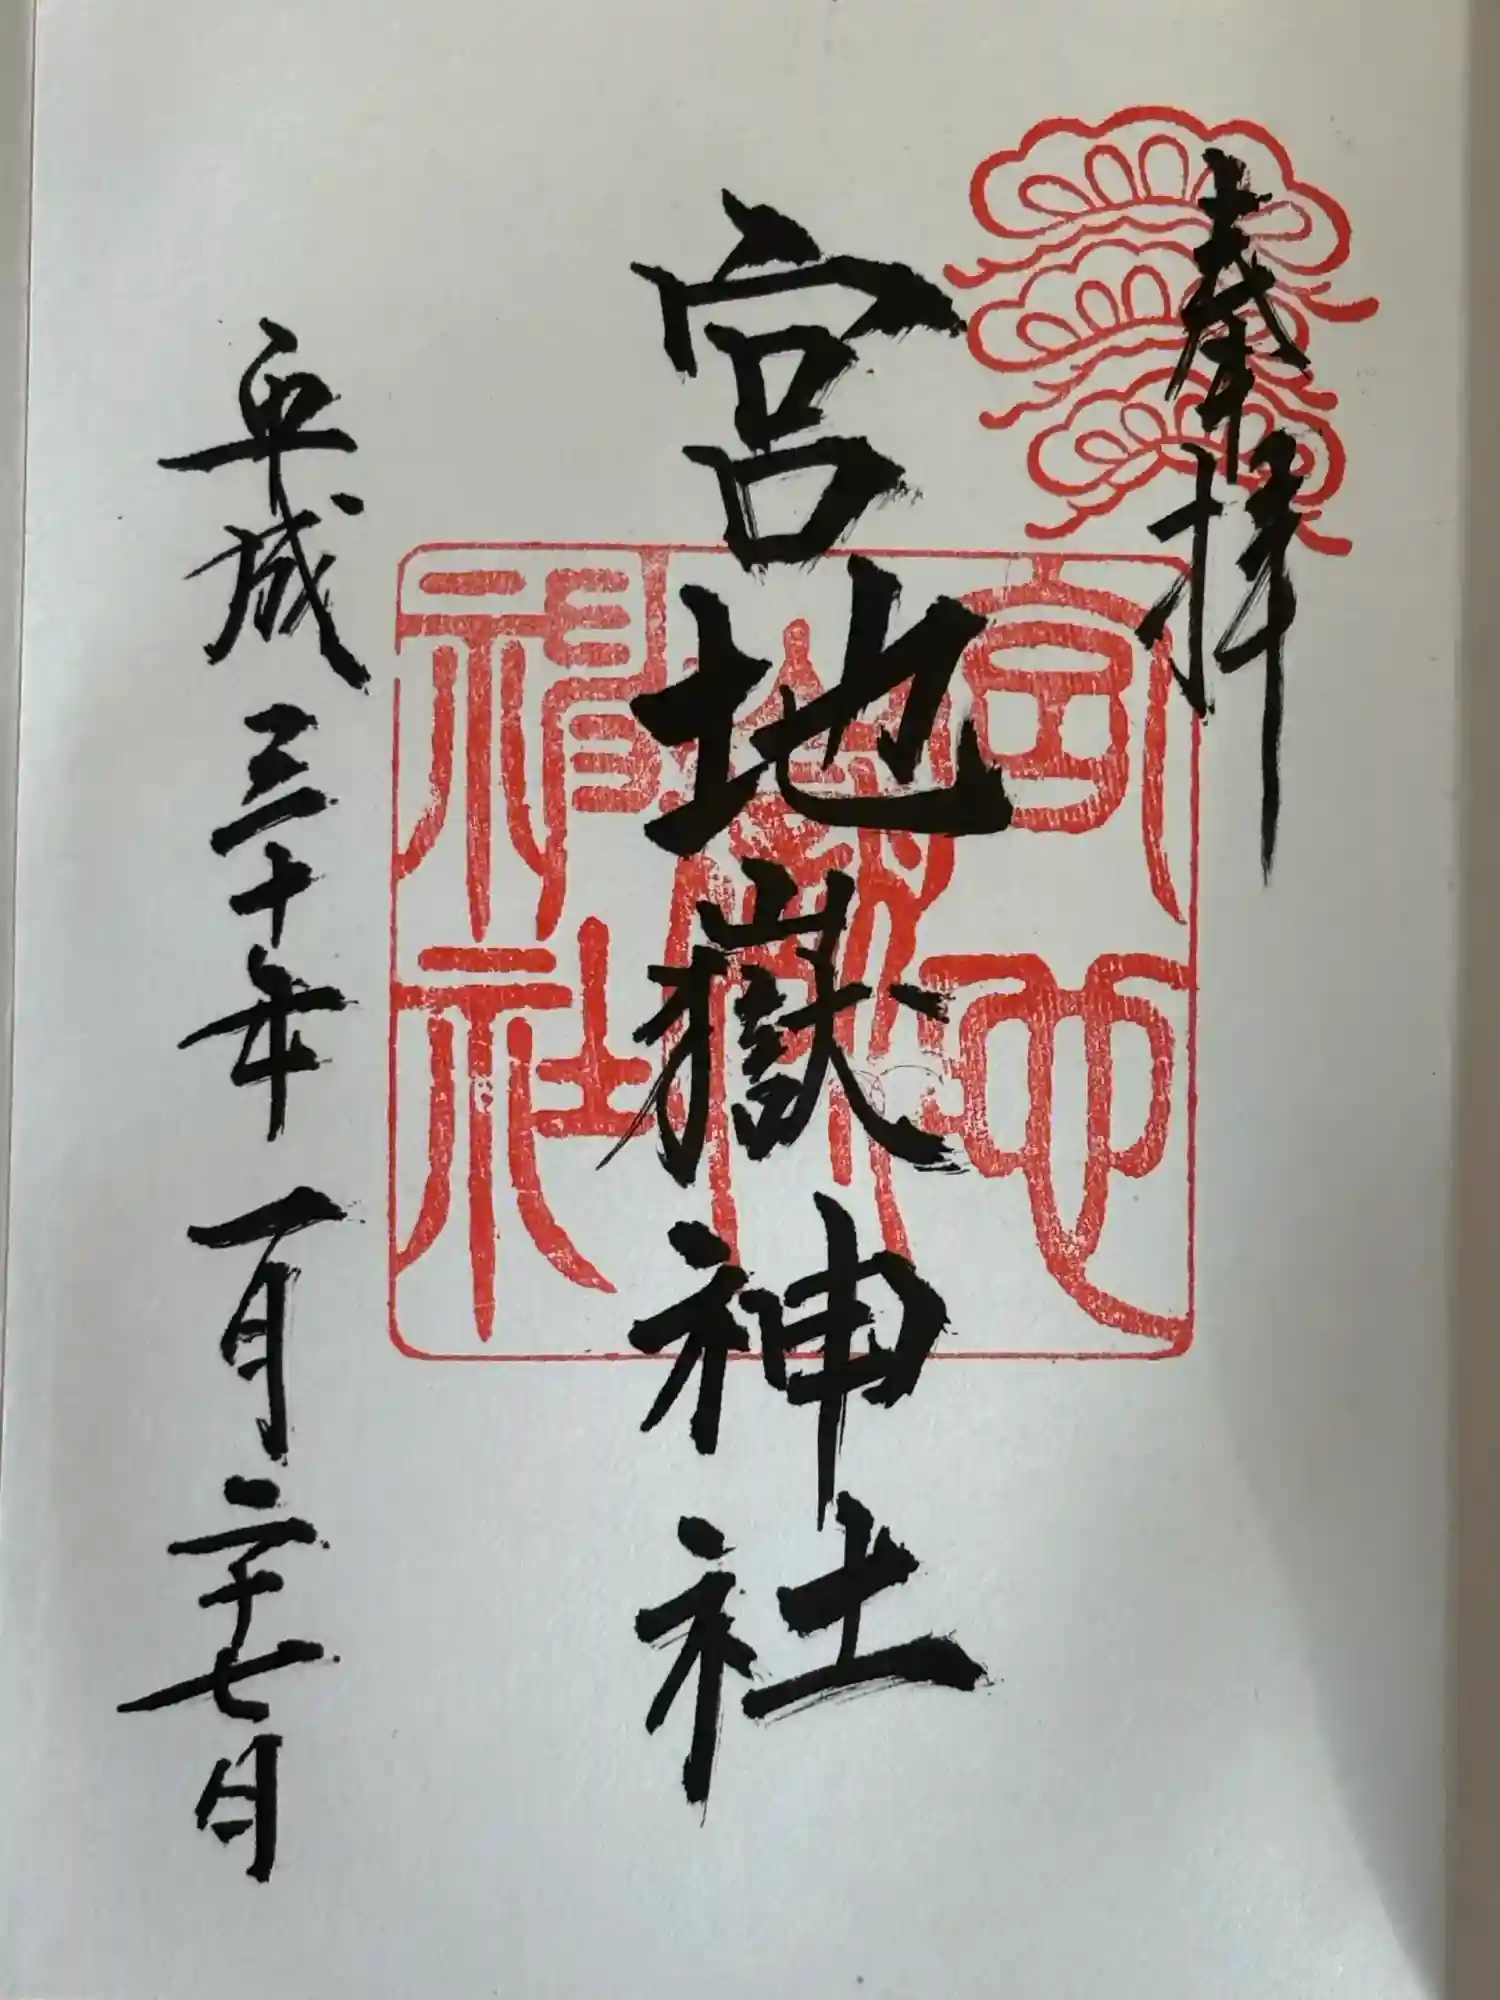 奉拝
宮地嶽神社
宮地嶽神社
平成三十年一月二十七日